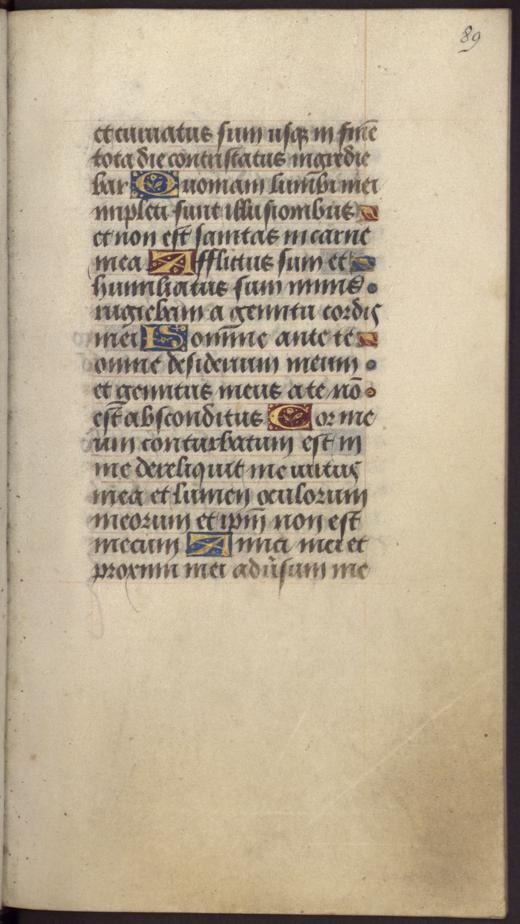 89
et curvatus sum usq; in finē
tota die contristatus ingredie
bar Quoniam lumbi mei
impleti sunt illusionibus
et non est sanitas in carne
mea Afflictus sum et
humiliatus sum nimis
rugiebam a gemitu cordis
mei Domine ante te
omne desiderium meum
et gemitus meus a te nō
est absconditus Cor me
um conturbatum est in
me dereliquit me virtus
mea et lumen oculorum
meorum et ipm̄ non est
mecum Amici mei et
proximi mei adūsum me